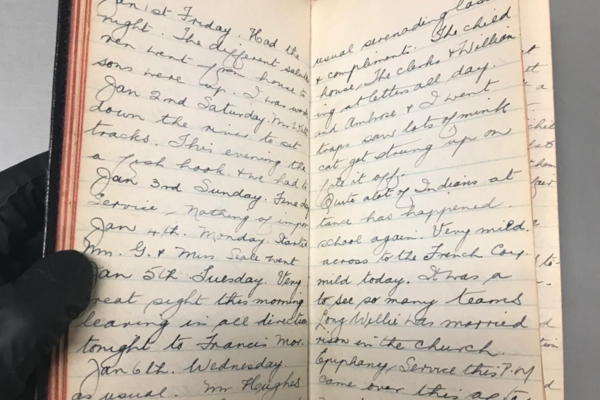 Jan 1st Friday. Had the usual serenading last
night. The different salutes & compliments. The child
ren went from house to house. The clerks & Willian
sons were up. I was work ing at letters all day.
Jan 2nd Saturday. Mr and Ambrose & I went
down the river to set traps saw lots of mink
tracks. This evening the cat got strung up on
a fish hook & we had to file it off.
Jan 3rd Sunday. Fine day Quite a lot of Indians at
Service - Nothing of impor tance has happened.
Jan 4th. Monday. Started school again. Very mild.
Mr. G. & Miss Gale went across to the French Coy.
Jan 5th Tuesday. Very mild today. It was a
great sight this morning to see so many teams
leaving in all directions Long Willie was married
tonight to Francis Mor. rison in the church.
Jan 6th. Wednesday. Epiphany Service this P.M
as usual. Mr Hughes came over this